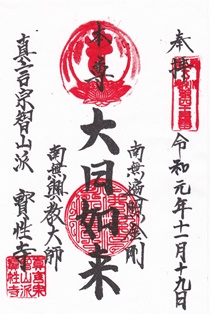 奉拝
令和元年十一月十九日
本尊
大日如来
南無遍照金剛
南無興教大師
真言宗智山派
寳性寺